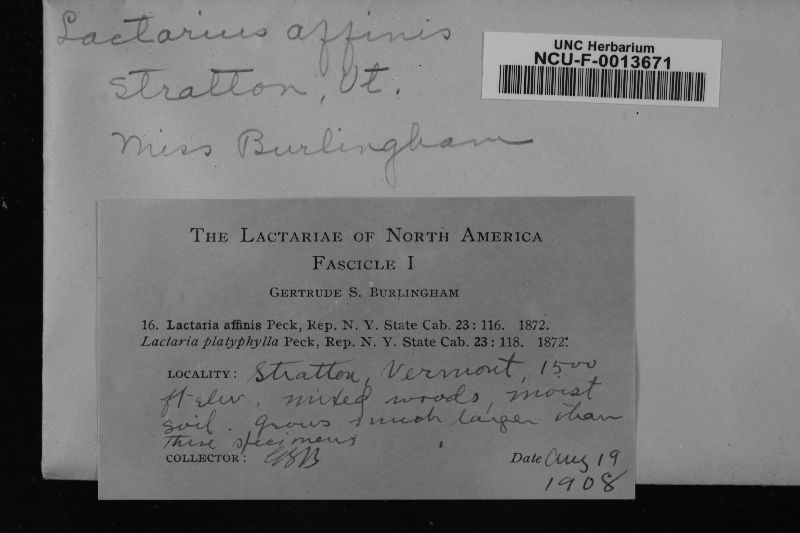 Lactarius affinis
Stratton, Vt.
Miss Burlingham
UNC Herbarium
NCU-F-0013671
THE LACTARIAE OF NORTH AMERICA
FASCICLE I
GERTRUDE S. BURLINGHAM
16. Lactaria affinis Peck, Rep. N. Y. State Cab. 23: 116. 1872.
Lactaria platyphylla Peck, Rep. N. Y. State Cab. 23: 118. 1872.
LOCALITY: Stratton, Vermont, 1500
ft elev. mixed woods, moist
soil. grows much larger than
these specimens
COLLECTOR: GSB Date Aug 19
1908